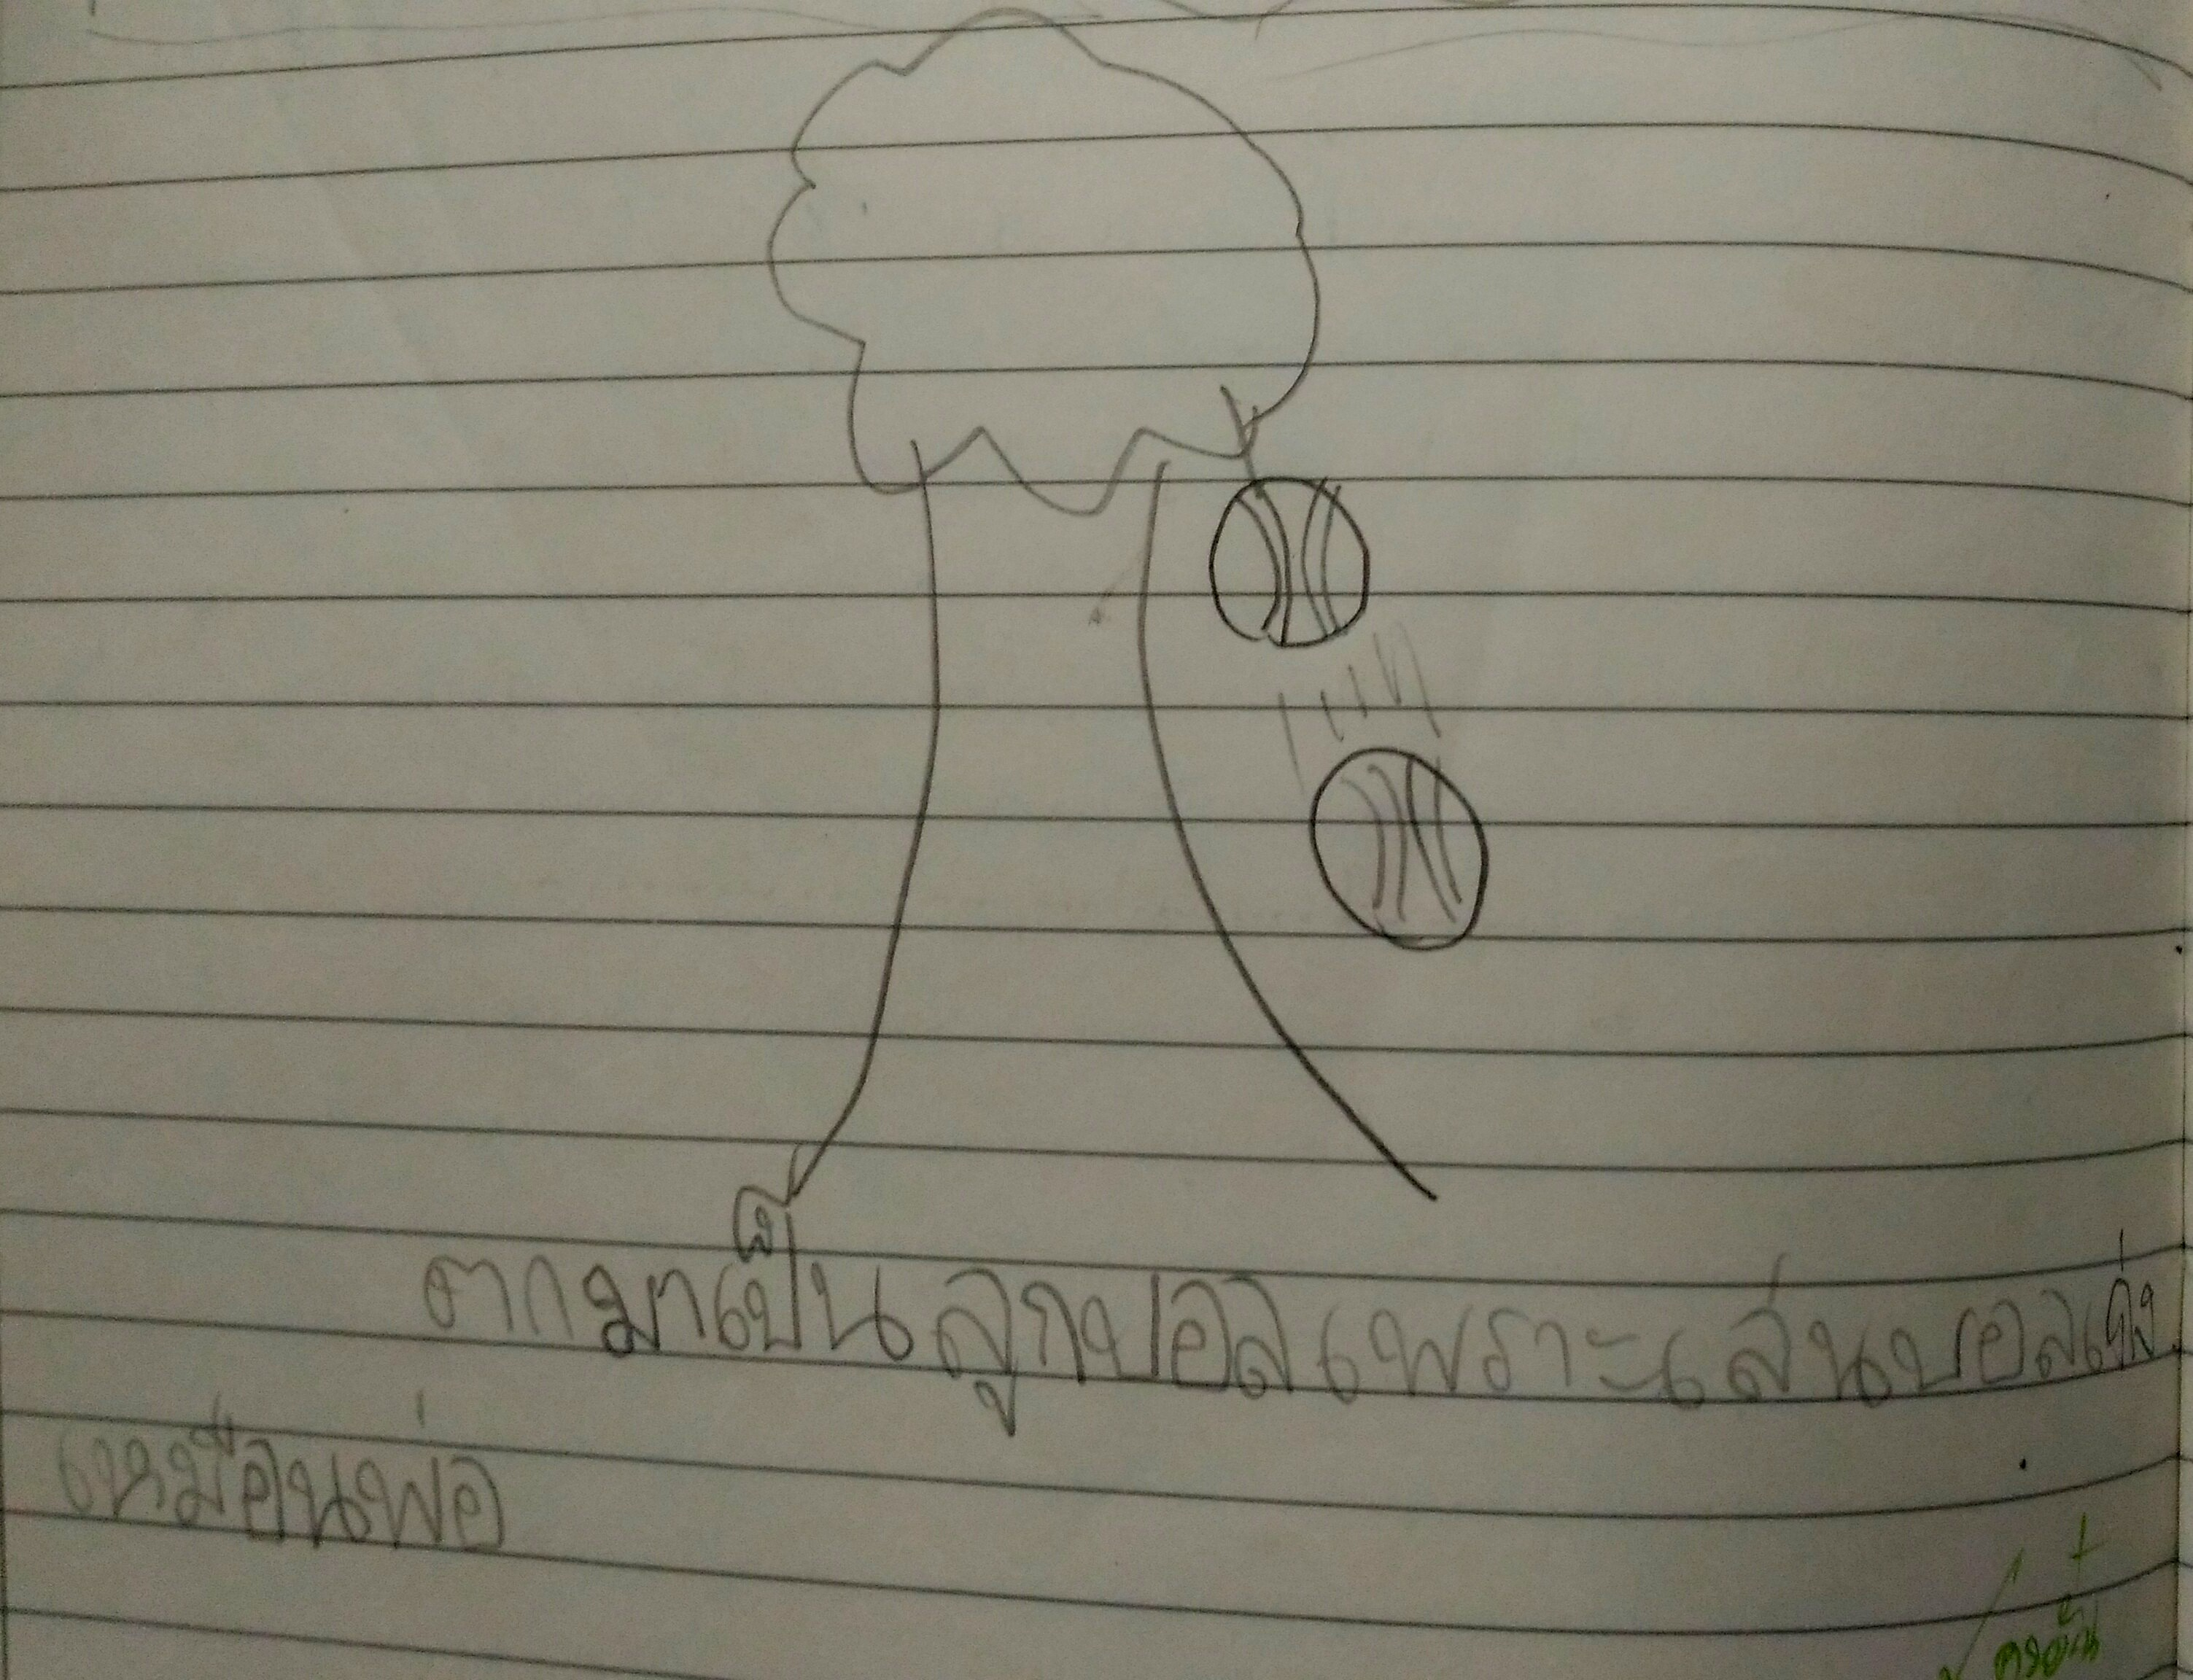 ตกมาเป็นลูกบอลเพราะเล่นบอลเก่ง
เหมือนพ่อ